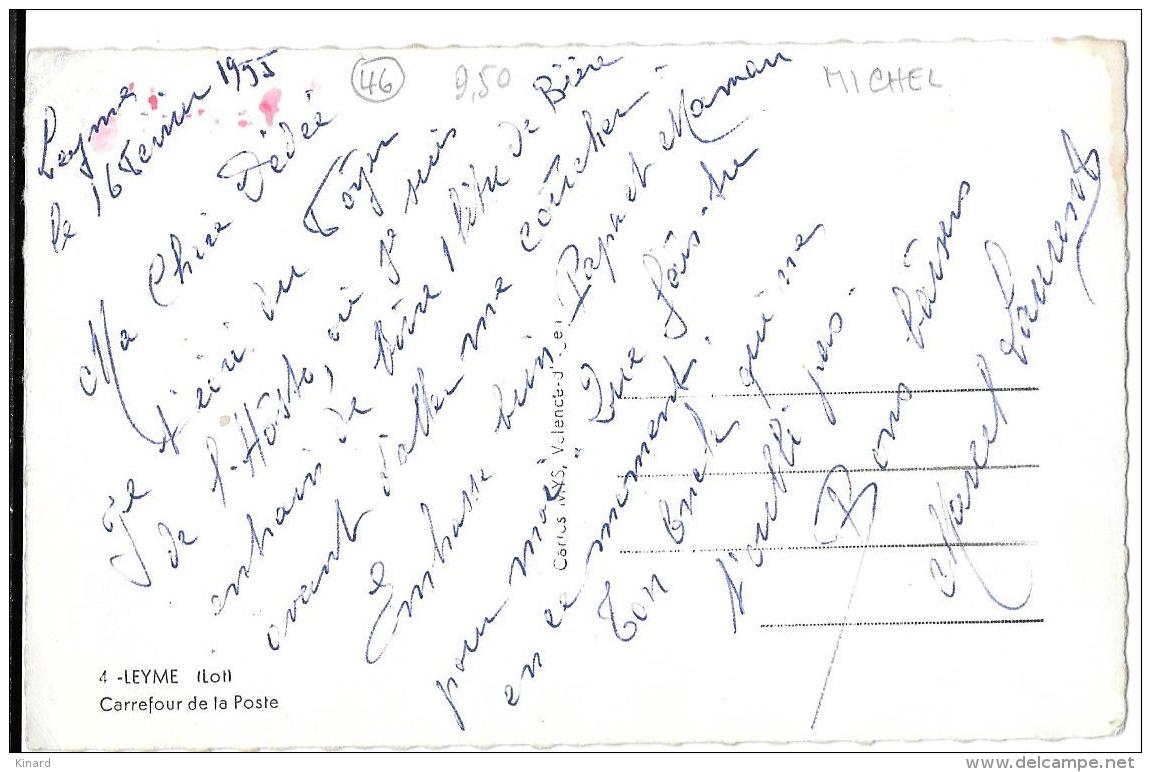 46
9,50
MICHEL
Leyme
le 16 Février 1955
Ma Chère Dédée
Je t'écris du Foyer
de l'Hosto, où je suis
entrain de boire 1 litre de Bière
avant d'aller me coûcher
Embrasse bien Papa et Maman
pour moi. Que fais-tu
en ce moment.
Ton Oncle qui ne
t'oublie pas.
Bons baisers
Marcel Laurent
Cartes MYS, Valence-d'
4 -LEYME (Lot)
Carrefour de la Poste
Kinard
delcampe.net